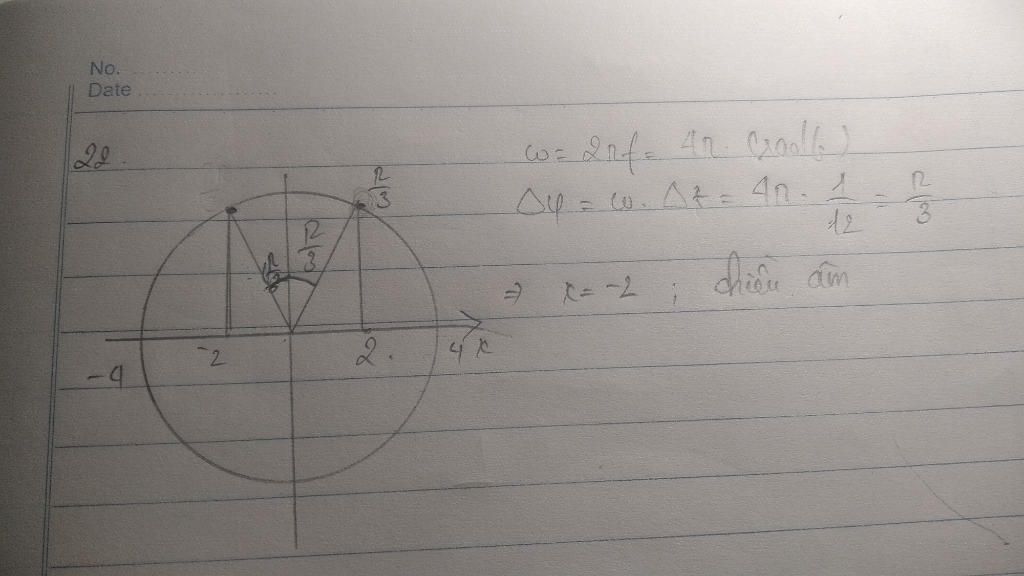 No.
Date
22.
ω = 2πf = 4π (rad/s)
Δφ = ω. Δt = 4π. 1/12 = π/3
⇒ x = -2 ; chiều âm
π/3
π/3
-4 -2 2. 4 x